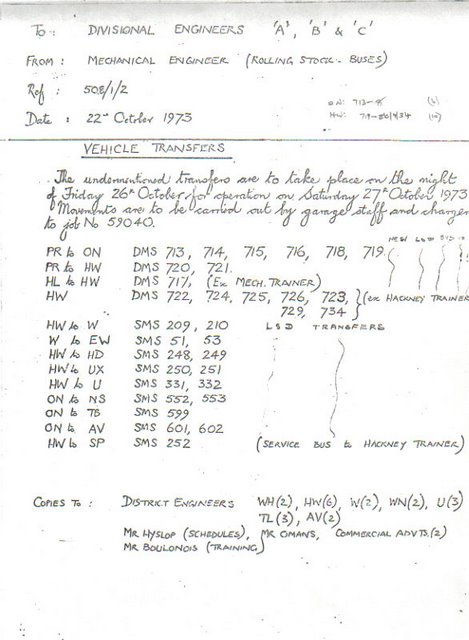 To : DIVISIONAL ENGINEERS 'A', 'B' & 'C'
FROM : MECHANICAL ENGINEER (ROLLING STOCK - BUSES)
Ref : 508/1/2
Date : 22nd October 1973
VEHICLE TRANSFERS
The undermentioned transfers are to take place on the night
of Friday 26th October for operation on Saturday 27th October 1973
Movements are to be carried out by garage staff and charged
to job No 59040.
PR to ON DMS 713, 714, 715, 716, 718, 719
PR to HW DMS 720, 721.
HL to HW DMS 717, (Ex MECH. TRAINER)
HW DMS 722, 724, 725, 726, 723, (ex HACKNEY TRAINER
729, 734
HW to W SMS 209, 210 LSD TRANSFERS
W to EW SMS 51, 53
HW to HD SMS 248, 249
HW to UX SMS 250, 251
HW to U SMS 331, 332
ON to NS SMS 552, 553
ON to TB SMS 599
ON to AV SMS 601, 602
HW to SP SMS 252 (SERVICE BUS to HACKNEY TRAINER)
COPIES TO : DISTRICT ENGINEERS WH(2), HW(6), W(2), WN(2), U(3)
TL(3), AV(2)
MR HYSLOP (SCHEDULES), MR OMANS, COMMERCIAL ADVTS.(2)
MR BOULONOIS (TRAINING)